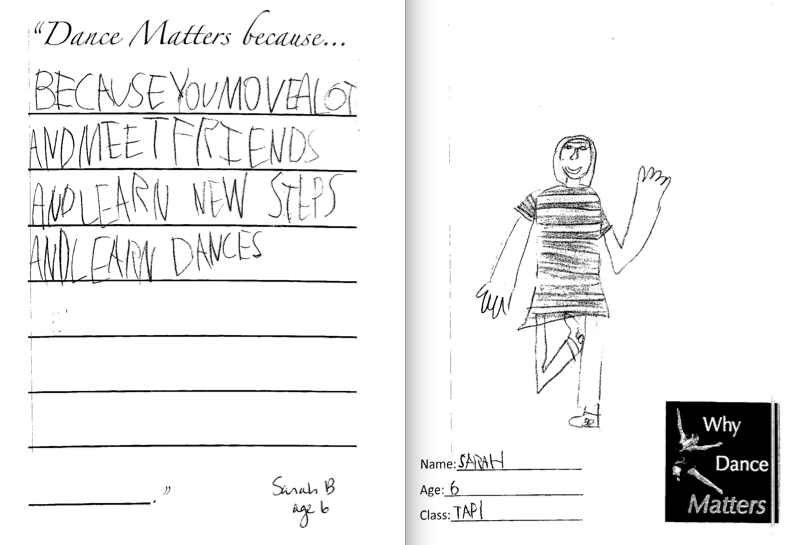 “Dance Matters because...
BECAUSE YOU MOVE A LOT
AND MEET FRIENDS
AND LEARN NEW STEPS
AND LEARN DANCES
.”
Sarah B
age 6
Name: SARAH
Age: 6
Class: TAP 1
Why
Dance
Matters